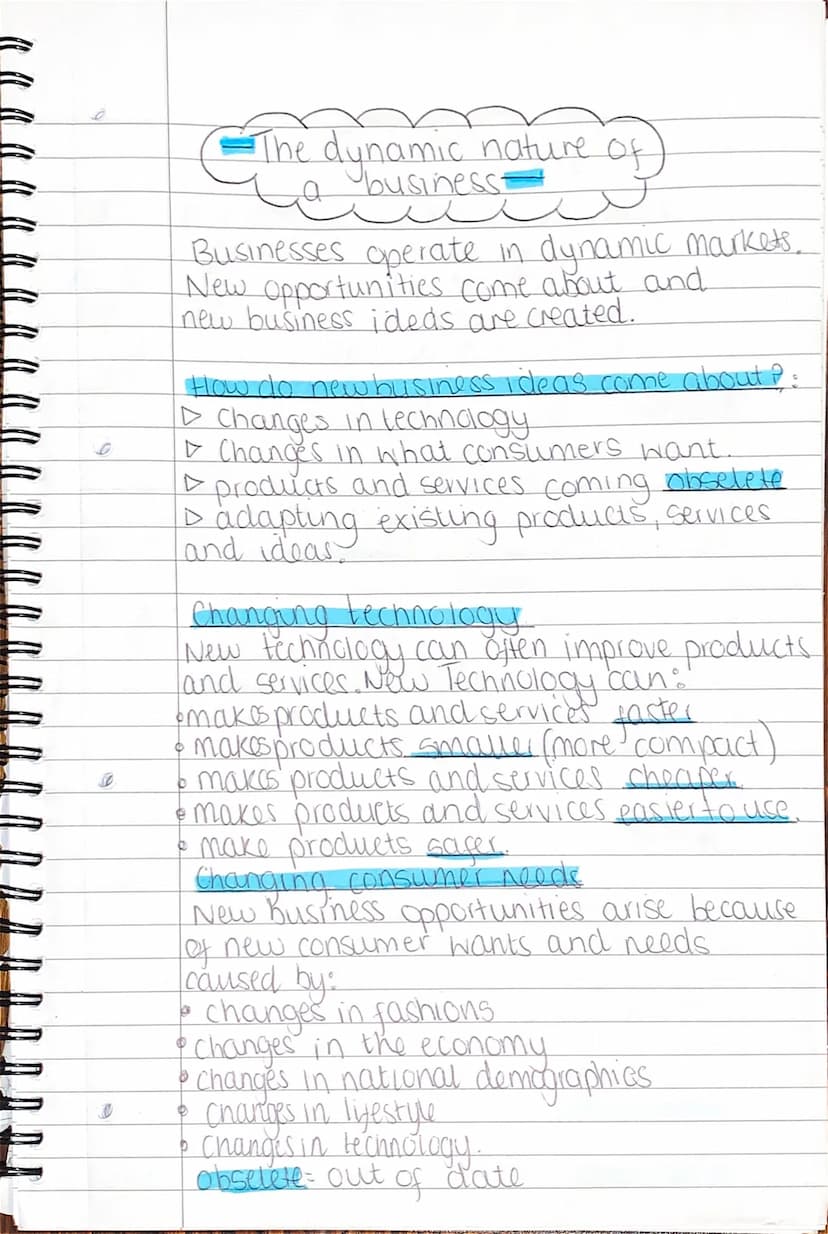 The dynamic nature of
a business
Businesses operate in dynamic markets.
New opportunities come about and
new business ideas are created.
How do new business ideas come about?:
▷ Changes in technology
▷ Changes in what consumers want.
▷ products and services coming obselete
▷ adapting existing products, services
and ideas.
Changing technology
New technology can often improve products
and services. New Technology can:
• makes products and services faster
• makes products smaller (more compact)
• makes products and services cheaper.
• makes products and services easier to use.
• make products safer.
Changing consumer needs
New business opportunities arise because
of new consumer wants and needs
caused by:
• changes in fashions
• changes in the economy
• changes in national demographics
• changes in lifestyle
• changes in technology.
obselete = out of date